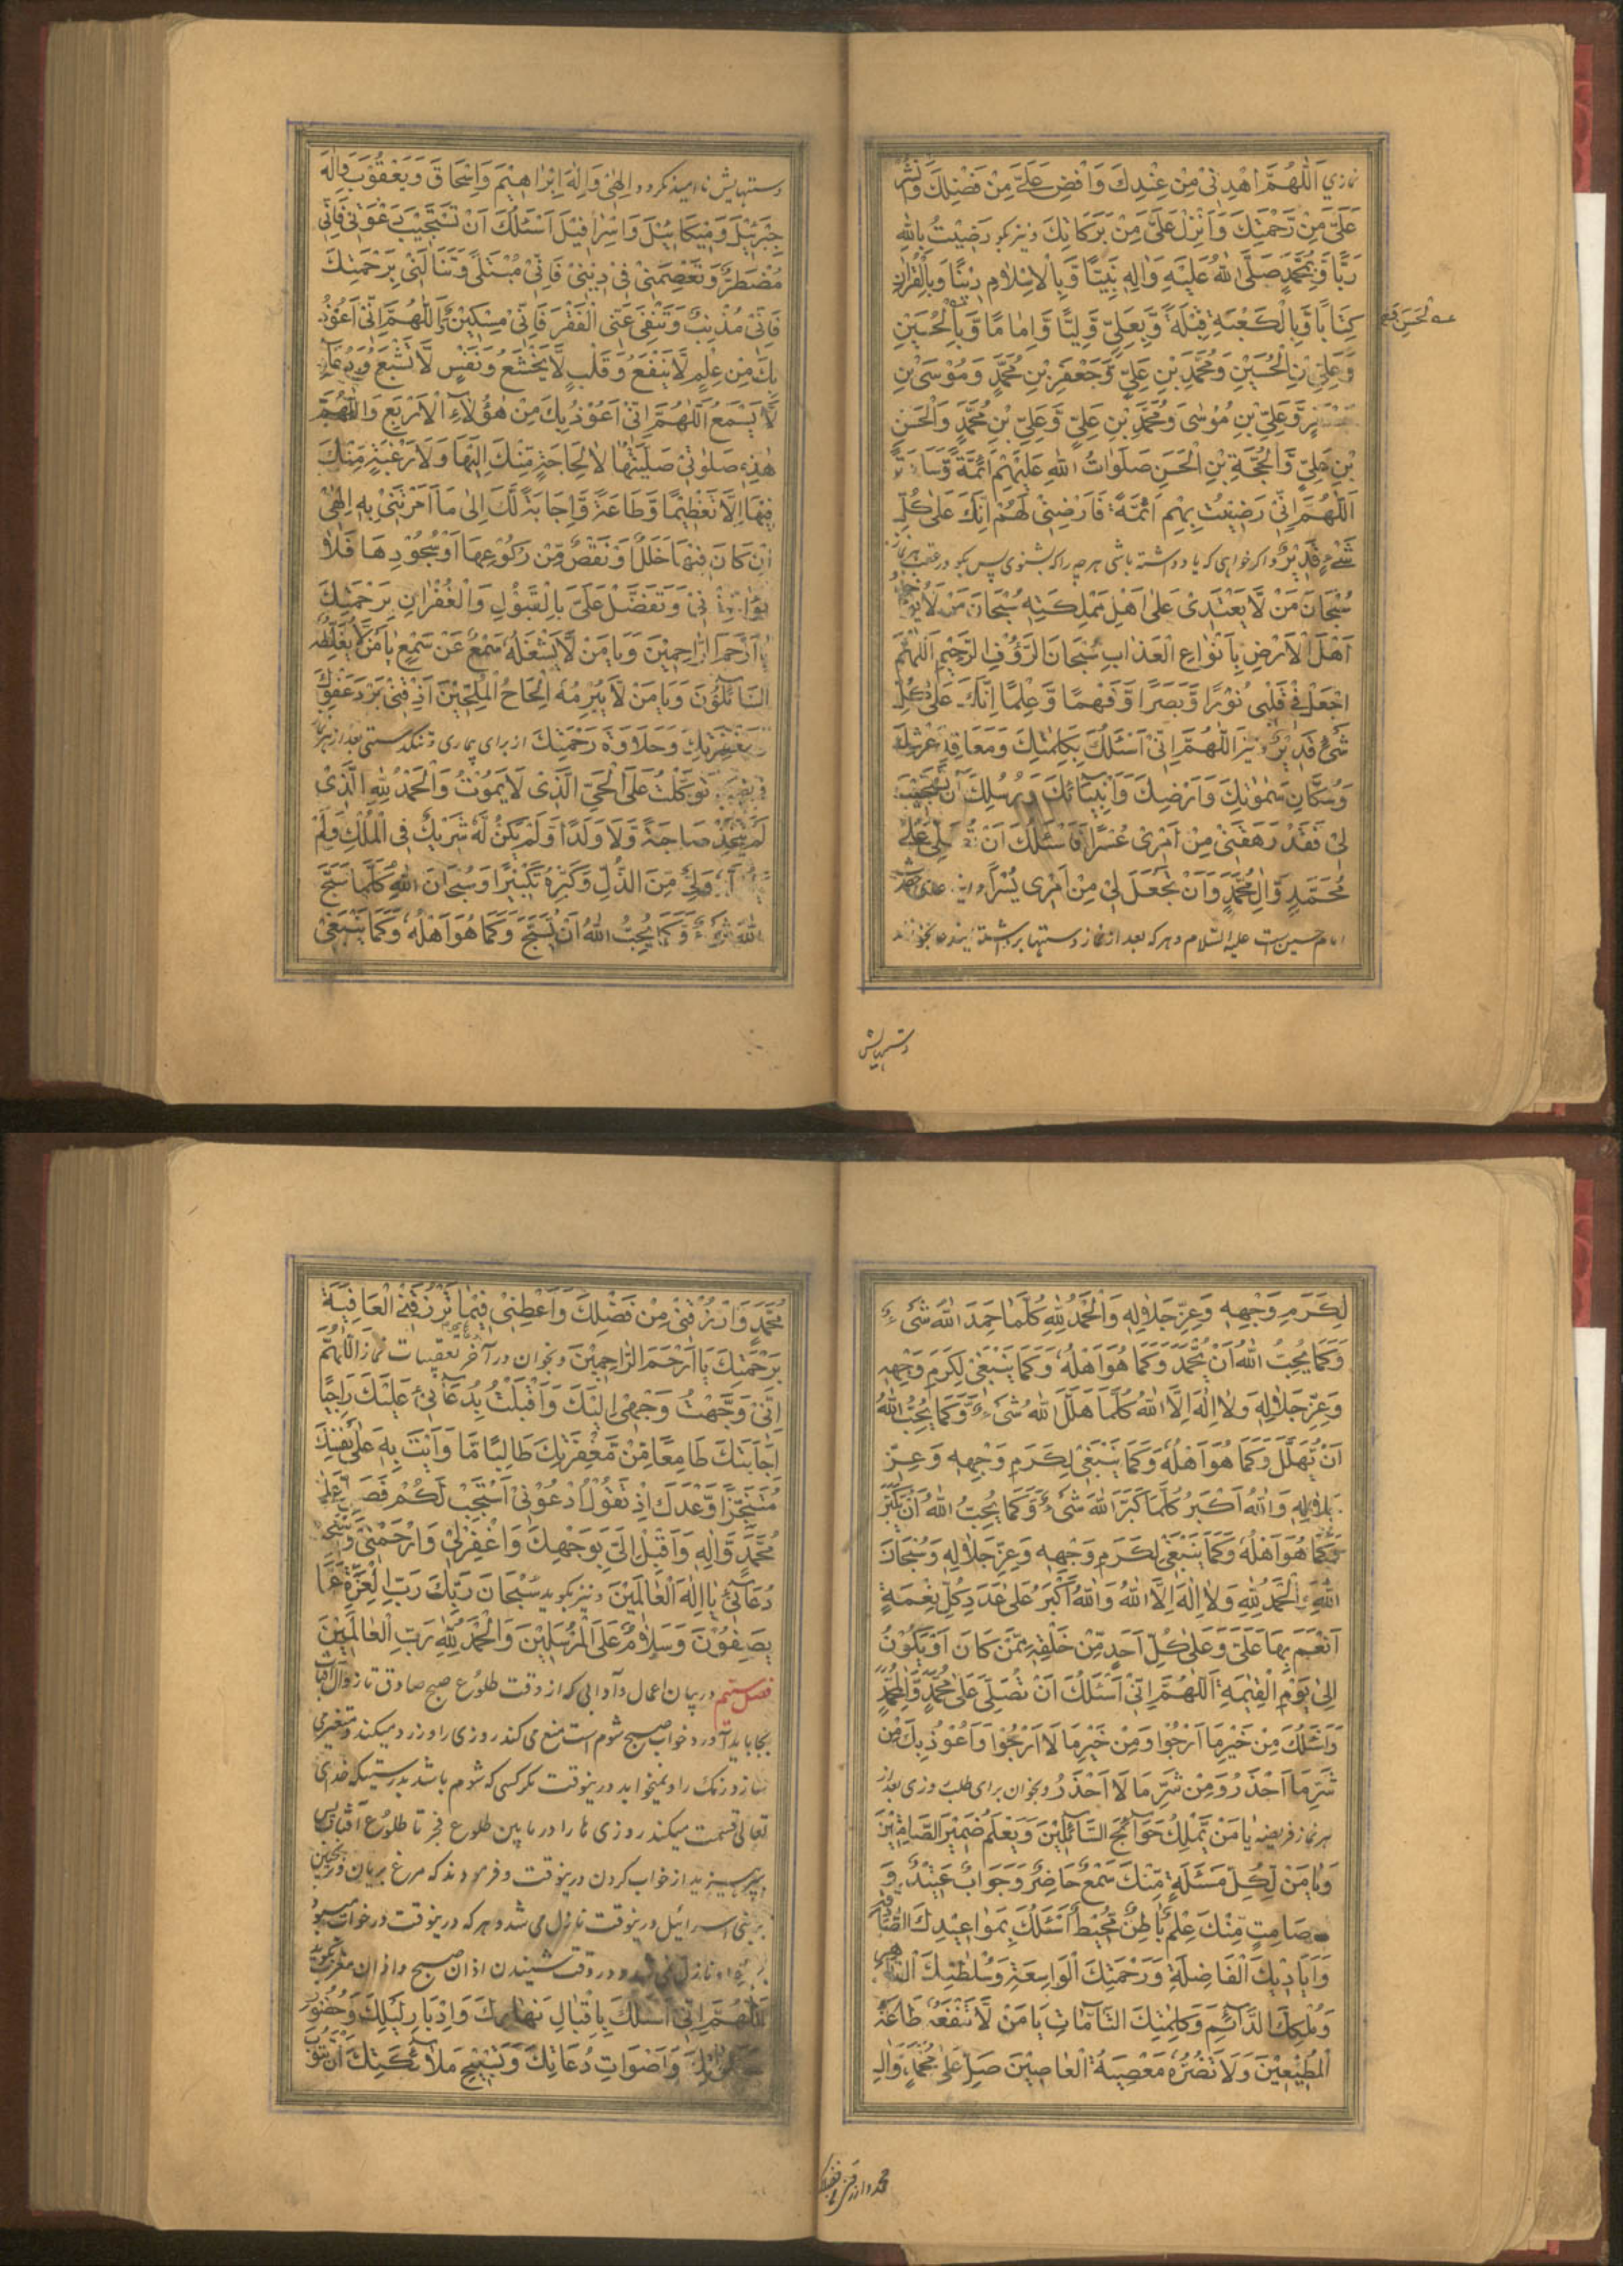 نمازي اَللّٰهُمَّ اهْدِنِيْ مِنْ عِنْدِكَ وَاَفِضْ عَلَيَّ مِنْ فَضْلِكَ وَانْشُرْ
عَلَيَّ مِنْ رَحْمَتِكَ وَاَنْزِلْ عَلَيَّ مِنْ بَرَكَاتِكَ ونیز بگو رَضِيْتُ بِاللّٰهِ
رَبًّا وَّبِمُحَمَّدٍ صَلَّى اللّٰهُ عَلَيْهِ وَاٰلِهٖ نَبِيًّا وَّبِالْاِسْلَامِ دِيْنًا وَّبِالْقُرْاٰنِ
كِتَابًا وَّبِالْكَعْبَةِ قِبْلَةً وَّبِعَلِيٍّ وَّلِيًّا وَّاِمَامًا وَّبِالْحُسَيْنِ
وَعَلِيِّ بْنِ الْحُسَيْنِ وَمُحَمَّدِ بْنِ عَلِيٍّ وَّجَعْفَرِ بْنِ مُحَمَّدٍ وَمُوْسَى بْنِ
وَّعَلِيِّ بْنِ مُوْسٰى وَمُحَمَّدِ بْنِ عَلِيٍّ وَّعَلِيِّ بْنِ مُحَمَّدٍ وَالْحَسَنِ
بْنِ عَلِيٍّ وَّالْحُجَّةِ بْنِ الْحَسَنِ صَلَوَاتُ اللّٰهِ عَلَيْهِمْ اَئِمَّةً
اَللّٰهُمَّ اِنِّيْ رَضِيْتُ بِهِمْ اَئِمَّةً فَارْضِنِيْ لَهُمْ اِنَّكَ عَلٰى كُلِّ
شَيْءٍ قَدِيْرٌ واکر خواهی که یاد داشته باشی هرچه را که بشنوی پس بگو در عقب هر نماز
سُبْحَانَ مَنْ لَّا يَعْتَدِيْ عَلٰى اَهْلِ مَمْلِكَتِهٖ سُبْحَانَ مَنْ لَّا
اَهْلَ الْاَرْضِ بِاَنْوَاعِ الْعَذَابِ سُبْحَانَ الرَّؤُفِ الرَّحِيْمِ اَللّٰهُمَّ
اجْعَلْ فِيْ قَلْبِيْ نُوْرًا وَّبَصَرًا وَّفَهْمًا وَّعِلْمًا اِنَّكَ عَلٰى كُلِّ
شَيْءٍ قَدِيْرٌ ونیز اَللّٰهُمَّ اِنِّيْ اَسْئَلُكَ بِكَلِمَاتِكَ وَمَعَاقِدِ عَرْشِكَ
وَسُكَّانِ سَمٰوَاتِكَ وَاَرْضِكَ وَاَنْبِيَائِكَ وَرُسُلِكَ اَنْ تَسْتَجِيْبَ
لِيْ فَقَدْ رَهَقَنِيْ مِنْ اَمْرِيْ عُسْرًا فَاَسْئَلُكَ اَنْ تُصَلِّيَ عَلٰى
مُحَمَّدٍ وَّاٰلِ مُحَمَّدٍ وَاَنْ تَجْعَلَ لِيْ مِنْ اَمْرِيْ يُسْرًا واین دعای
امام حسین ست علیه السلام و هرکه بعد از نماز دستها برداشته بخواند
دستهایش
دستهایش ناامید نکردد اِلٰهِيْ وَاِلٰهَ اِبْرَاهِيْمَ وَاِسْحَاقَ وَيَعْقُوْبَ وَاِلٰهَ
جَبْرَئِيْلَ وَمِيْكَائِيْلَ وَاِسْرَافِيْلَ اَسْئَلُكَ اَنْ تَسْتَجِيْبَ دَعْوَتِيْ فَاِنِّيْ
مُضْطَرٌّ وَتَعْصِمَنِيْ فِيْ دِيْنِيْ فَاِنِّيْ مُبْتَلًى وَتَنَالَنِيْ بِرَحْمَتِكَ
فَاِنِّيْ مُذْنِبٌ وَتَنْفِيَ عَنِّي الْفَقْرَ فَاِنِّيْ مِسْكِيْنٌ اَللّٰهُمَّ اِنِّيْ اَعُوْذُ
بِكَ مِنْ عِلْمٍ لَّا يَنْفَعُ وَقَلْبٍ لَّا يَخْشَعُ وَنَفْسٍ لَّا تَشْبَعُ وَدُعَاءٍ
لَّا يُسْمَعُ اَللّٰهُمَّ اِنِّيْ اَعُوْذُ بِكَ مِنْ هٰؤُلَاءِ الْاَرْبَعِ وَاللّٰهُمَّ
هٰذِهٖ صَلٰوتِيْ صَلَّيْتُهَا لَا لِحَاجَةٍ مِنْكَ اِلَيْهَا وَلَا رَغْبَةٍ مِّنْكَ
فِيْهَا اِلَّا تَعْظِيْمًا وَّطَاعَةً وَّاِجَابَةً لَّكَ اِلٰى مَا اَمَرْتَنِيْ بِهٖ اِلٰهِيْ
اِنْ كَانَ فِيْهَا خَلَلٌ وَّنَقْصٌ مِّنْ رُكُوْعِهَا اَوْ سُجُوْدِهَا فَلَا
تُؤَاخِذْنِيْ وَتَفَضَّلْ عَلَيَّ بِالْقَبُوْلِ وَالْغُفْرَانِ بِرَحْمَتِكَ
يَا اَرْحَمَ الرَّاحِمِيْنَ وَيَا مَنْ لَّا يَشْغَلُهٗ سَمْعٌ عَنْ سَمْعٍ يَا مَنْ لَّا يُغَلِّطُهُ
السَّائِلُوْنَ وَيَا مَنْ لَّا يُبْرِمُهٗ اِلْحَاحُ الْمُلِحِّيْنَ اَذِقْنِيْ بَرْدَ عَفْوِكَ
وَمَغْفِرَتِكَ وَحَلَاوَةَ رَحْمَتِكَ از برای بیماری و تنکدستی بعد از هر نماز
تَوَكَّلْتُ عَلَى الْحَيِّ الَّذِيْ لَا يَمُوْتُ وَالْحَمْدُ لِلّٰهِ الَّذِيْ
لَمْ يَتَّخِذْ صَاحِبَةً وَّلَا وَلَدًا وَّلَمْ يَكُنْ لَّهٗ شَرِيْكٌ فِي الْمُلْكِ وَلَمْ
وَلِيٌّ مِّنَ الذُّلِّ وَكَبِّرْهُ تَكْبِيْرًا وَسُبْحَانَ اللّٰهِ كُلَّمَا سَبَّحَ
اللّٰهَ شَيْءٌ وَّكَمَا يُحِبُّ اللّٰهُ اَنْ يُّسَبَّحَ وَكَمَا هُوَ اَهْلُهٗ وَكَمَا يَنْبَغِيْ
لِكَرَمِ وَجْهِهٖ وَعِزِّ جَلَالِهٖ وَالْحَمْدُ لِلّٰهِ كُلَّمَا حَمِدَ اللّٰهَ شَيْءٌ
وَكَمَا يُحِبُّ اللّٰهُ اَنْ يُّحْمَدَ وَكَمَا هُوَ اَهْلُهٗ وَكَمَا يَنْبَغِيْ لِكَرَمِ وَجْهِهٖ
وَعِزِّ جَلَالِهٖ وَلَا اِلٰهَ اِلَّا اللّٰهُ كُلَّمَا هَلَّلَ اللّٰهَ شَيْءٌ وَّكَمَا يُحِبُّ اللّٰهُ
اَنْ يُّهَلَّلَ وَكَمَا هُوَ اَهْلُهٗ وَكَمَا يَنْبَغِيْ لِكَرَمِ وَجْهِهٖ وَعِزِّ
جَلَالِهٖ وَاللّٰهُ اَكْبَرُ كُلَّمَا كَبَّرَ اللّٰهَ شَيْءٌ وَّكَمَا يُحِبُّ اللّٰهُ اَنْ يُّكَبَّرَ
وَكَمَا هُوَ اَهْلُهٗ وَكَمَا يَنْبَغِيْ لِكَرَمِ وَجْهِهٖ وَعِزِّ جَلَالِهٖ وَسُبْحَانَ
اللّٰهِ وَالْحَمْدُ لِلّٰهِ وَلَا اِلٰهَ اِلَّا اللّٰهُ وَاللّٰهُ اَكْبَرُ عَلٰى عَدَدِ كُلِّ نِعْمَةٍ
اَنْعَمَ بِهَا عَلَيَّ وَعَلٰى كُلِّ اَحَدٍ مِّنْ خَلْقِهٖ مِمَّنْ كَانَ اَوْ يَكُوْنُ
اِلٰى يَوْمِ الْقِيٰمَةِ اَللّٰهُمَّ اِنِّيْ اَسْئَلُكَ اَنْ تُصَلِّيَ عَلٰى مُحَمَّدٍ وَّاٰلِ مُحَمَّدٍ
وَاَسْئَلُكَ مِنْ خَيْرِ مَا اَرْجُوْا وَمِنْ خَيْرِ مَا لَا اَرْجُوْا وَاَعُوْذُ بِكَ مِنْ
شَرِّ مَا اَحْذَرُ وَمِنْ شَرِّ مَا لَا اَحْذَرُ و بخوان برای طلب روزی بعد از
هر نماز فریضه يَا مَنْ يَّمْلِكُ حَوَائِجَ السَّائِلِيْنَ وَيَعْلَمُ ضَمِيْرَ الصَّامِتِيْنَ
وَيَا مَنْ لِّكُلِّ مَسْئَلَةٍ مِّنْكَ سَمْعٌ حَاضِرٌ وَّجَوَابٌ عَتِيْدٌ وَ
صَامِتٍ مِّنْكَ عِلْمٌ بَاطِنٌ مُّحِيْطٌ اَسْئَلُكَ بِمَوَاعِيْدِكَ الصَّادِقَةِ
وَاَيَادِيْكَ الْفَاضِلَةِ وَرَحْمَتِكَ الْوَاسِعَةِ وَسُلْطَنَتِكَ الْقَاهِرَةِ
وَمُلْكِكَ الدَّائِمِ وَكَلِمَاتِكَ التَّامَّاتِ يَا مَنْ لَّا تَنْفَعُهٗ طَاعَةُ
الْمُطِيْعِيْنَ وَلَا تَضُرُّهٗ مَعْصِيَةُ الْعَاصِيْنَ صَلِّ عَلٰى مُحَمَّدٍ وَّاٰلِ
مُحَمَّدٍ وَارْزُقْنِيْ مِنْ فَضْلِكَ وَاَعْطِنِيْ فِيْمَا تَرْزُقُنِي الْعَافِيَةَ
بِرَحْمَتِكَ يَا اَرْحَمَ الرَّاحِمِيْنَ و بخوان در آخر تعقیبات نماز اَللّٰهُمَّ
اِنِّيْ وَجَّهْتُ وَجْهِيْ اِلَيْكَ وَاَقْبَلْتُ بِدُعَائِيْ عَلَيْكَ رَاجِيًا
اِجَابَتَكَ طَامِعًا مِّنْ مَّغْفِرَتِكَ طَالِبًا مَّا وَاَيْتَ بِهٖ عَلٰى نَفْسِكَ
مُتَنَجِّزًا وَّعْدَكَ اِذْ تَقُوْلُ ادْعُوْنِيْ اَسْتَجِبْ لَكُمْ فَصَلِّ عَلٰى
مُحَمَّدٍ وَّاٰلِهٖ وَاَقْبِلْ اِلَيَّ بِوَجْهِكَ وَاغْفِرْ لِيْ وَارْحَمْنِيْ وَاسْتَجِبْ
دُعَائِيْ يَا اِلٰهَ الْعَالَمِيْنَ ونیز بگوید سُبْحَانَ رَبِّكَ رَبِّ الْعِزَّةِ عَمَّا
يَصِفُوْنَ وَسَلَامٌ عَلَى الْمُرْسَلِيْنَ وَالْحَمْدُ لِلّٰهِ رَبِّ الْعَالَمِيْنَ
در بیان اعمال و آدابی که از وقت طلوع صبح صادق تا زوال آفتاب
بجا باید آورد خواب صبح شوم است منع می کند روزی را و زرد میکند و متغیر می
سازد رنک را و نمیخوابد درینوقت مگر کسی که شوم باشد بدرستیکه خدای
تعالی قسمت میکند روزی ها را در مابین طلوع فجر تا طلوع آفتاب پس
بپرهیزید از خواب کردن درینوقت و فرمودند که مرغ بریان و ترنجبین
بر بنی اسرائیل درینوقت نازل می شد و هرکه درینوقت در خواب
نازل نمی و در وقت شنیدن اذان صبح و اذان مغرب بگوید
اَللّٰهُمَّ اِنِّيْ اَسْئَلُكَ بِاِقْبَالِ نَهَارِكَ وَاِدْبَارِ لَيْلِكَ وَحُضُوْرِ
وَاَصْوَاتِ دُعَاتِكَ وَتَسْبِيْحِ مَلَائِكَتِكَ اَنْ تَتُوْبَ